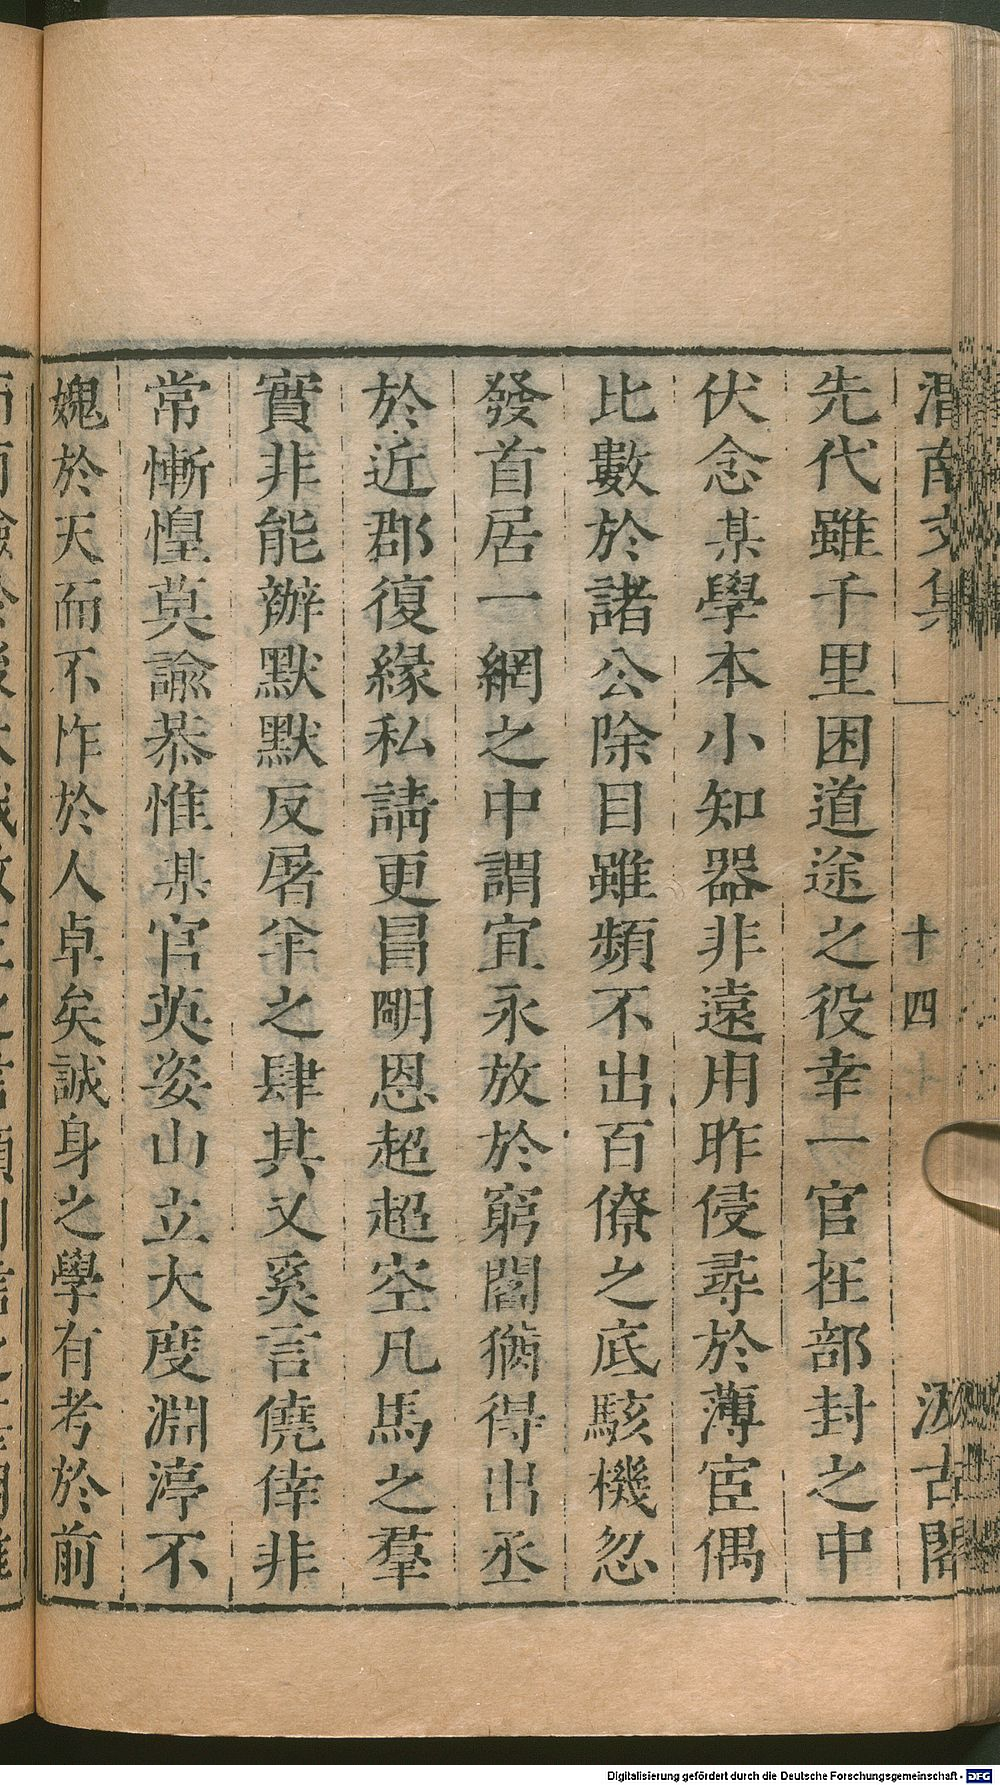 渭南文集 十四 汲古閣
先代雖千里困道途之役幸一官在部封之中
伏念某學本小知器非遠用昨侵尋於薄宦偶
比數於諸公除目雖頻不出百僚之底駭機忽
發首居一網之中謂宜永放於窮閻猶得出丞
於近郡復緣私請更冒明恩超超空凡馬之羣
實非能辦默默反屠羊之肆其又奚言僥倖非
常慚惶莫諭恭惟某官英姿山立大度淵渟不
媿於天而不怍於人卓矣誠身之學有考於前
Digitalisierung gefördert durch die Deutsche Forschungsgemeinschaft - DFG